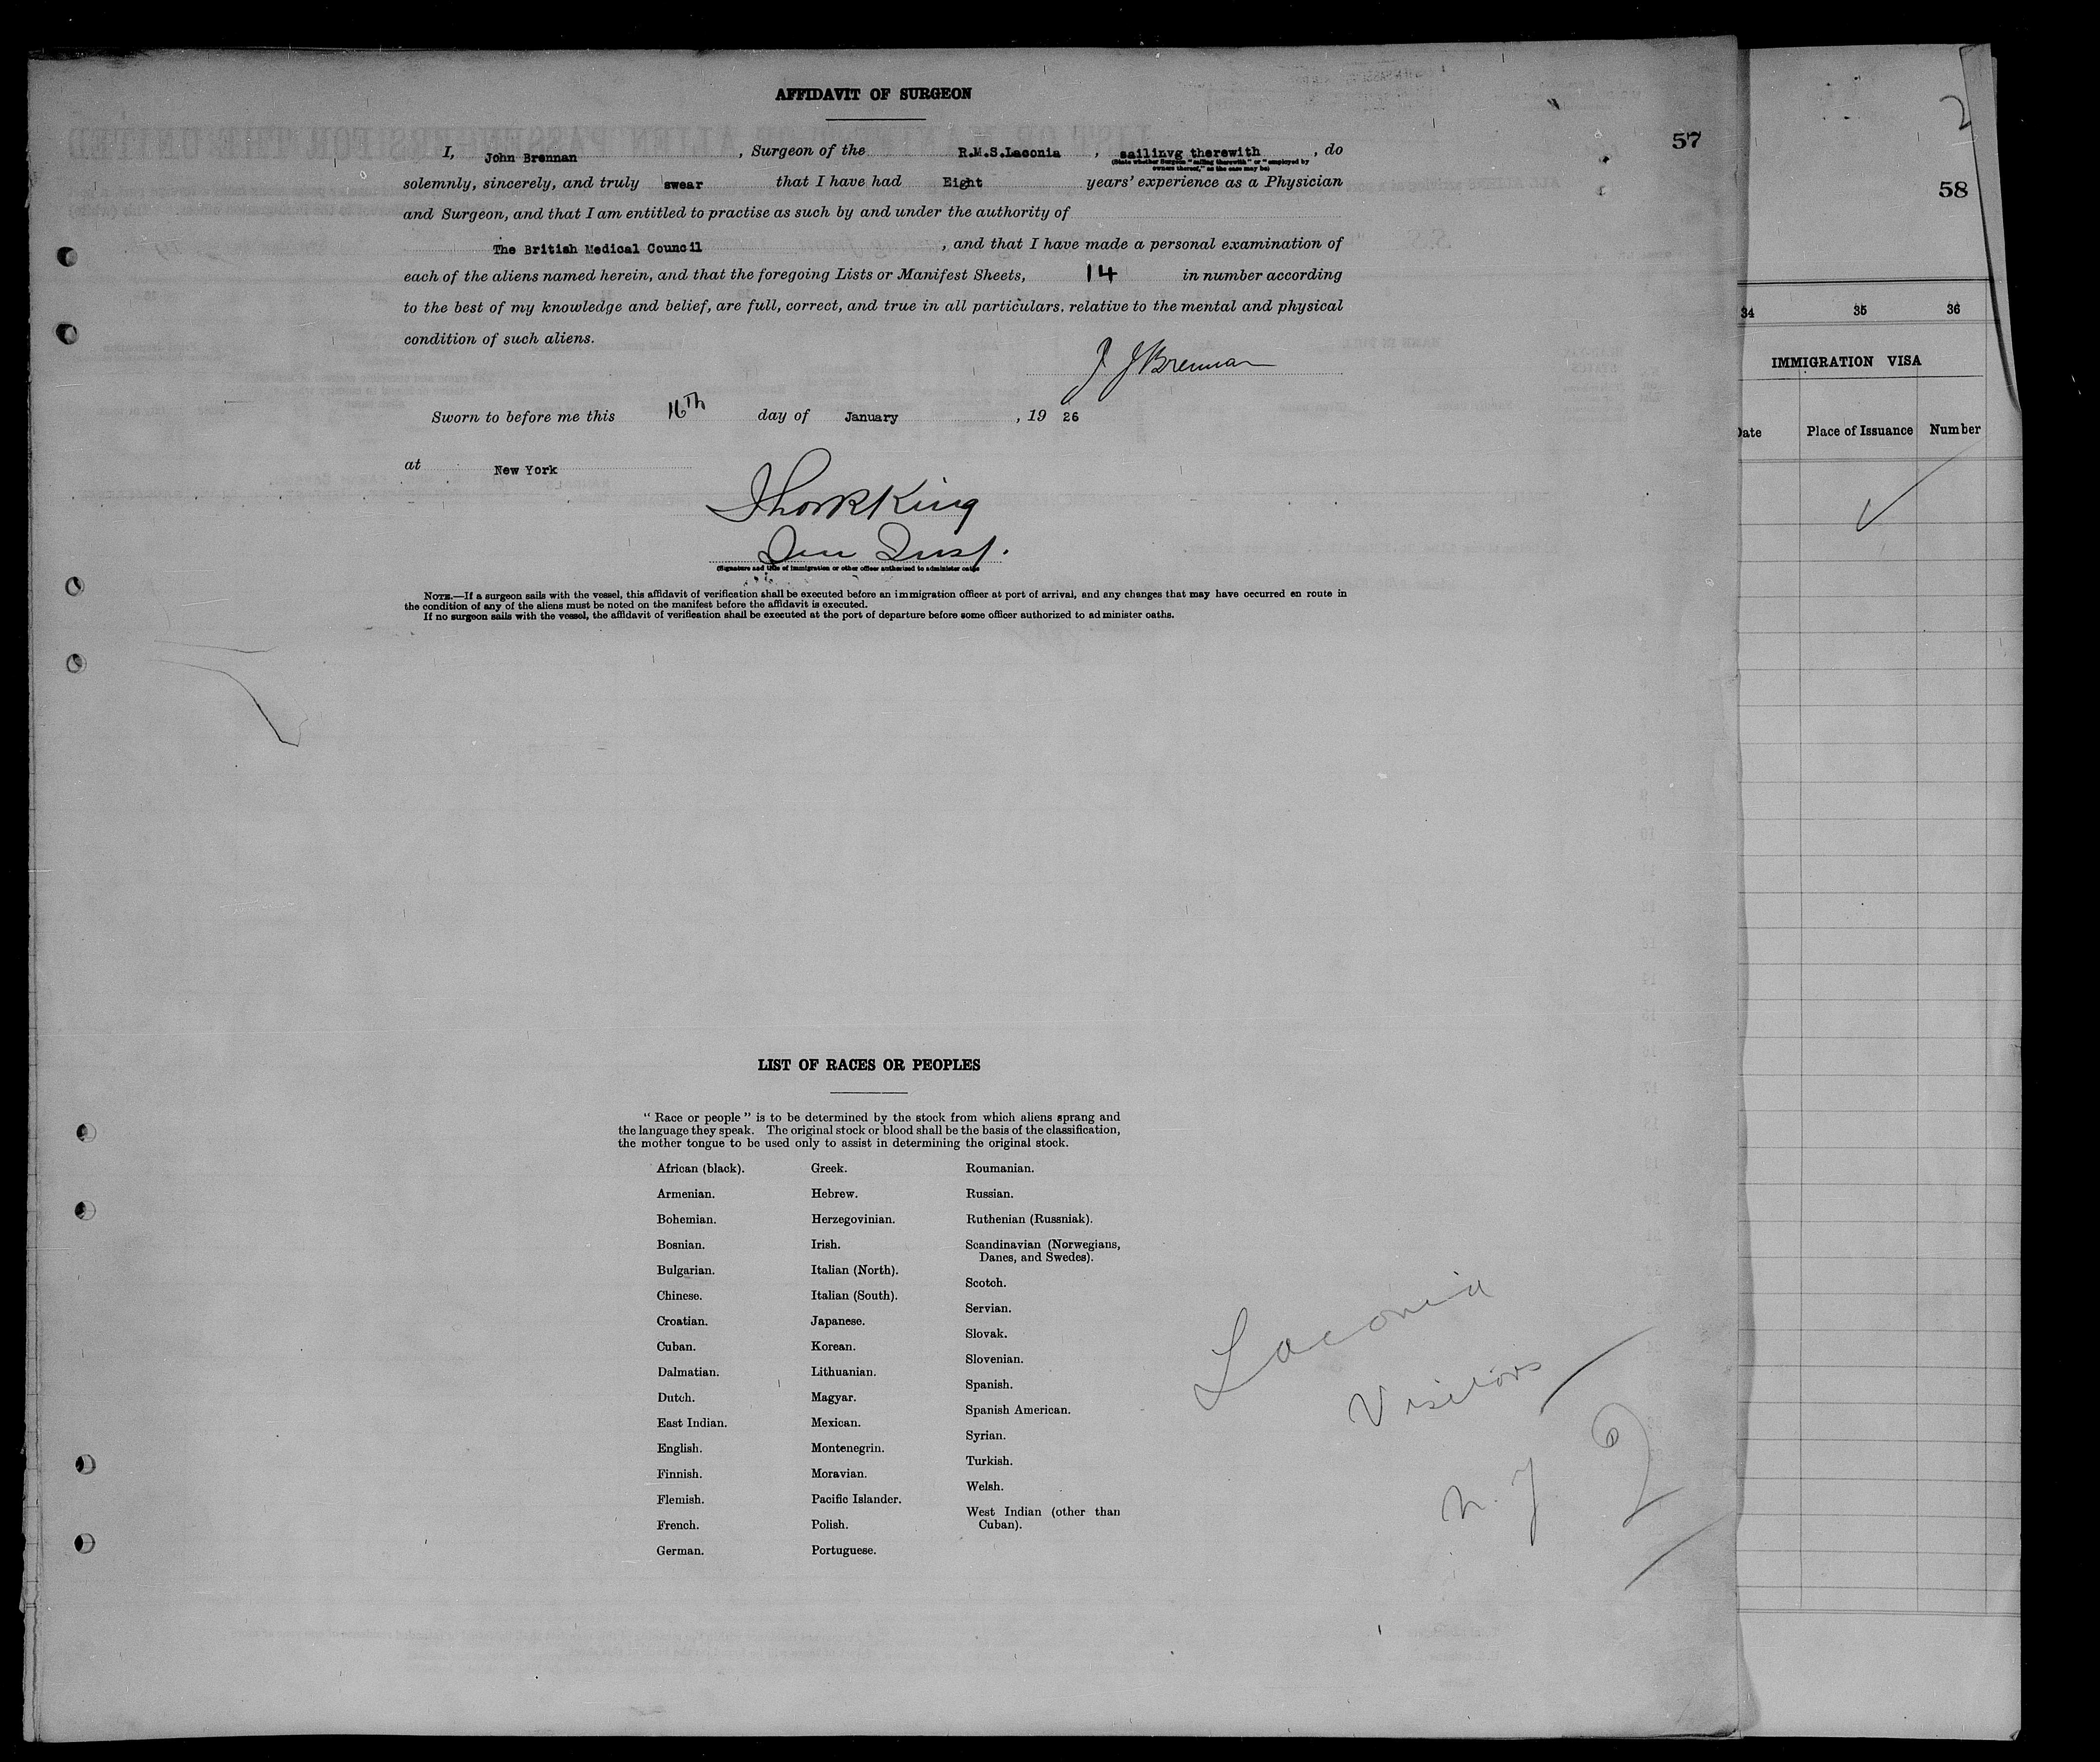 AFFIDAVIT OF SURGEON
57
I, John Brennan, Surgeon of the R.M.S.Laconia, sailinvg therewith, do
(State whether Surgeon "sailing therewith" or "employed by
owners thereof," as the case may be)
solemnly, sincerely, and truly swear that I have had Eight years' experience as a Physician
and Surgeon, and that I am entitled to practise as such by and under the authority of
The British Medical Council, and that I have made a personal examination of
each of the aliens named herein, and that the foregoing Lists or Manifest Sheets, 14 in number according
to the best of my knowledge and belief, are full, correct, and true in all particulars. relative to the mental and physical
condition of such aliens.
J J Brennan
Sworn to before me this 16th day of January, 19 26
at New York
King
(Signature and title of immigration or other officer authorized to administer oaths
NOTE.—If a surgeon sails with the vessel, this affidavit of verification shall be executed before an immigration officer at port of arrival, and any changes that may have occurred en route in
the condition of any of the aliens must be noted on the manifest before the affidavit is executed.
If no surgeon sails with the vessel, the affidavit of verification shall be executed at the port of departure before some officer authorized to administer oaths.
LIST OF RACES OR PEOPLES
"Race or people" is to be determined by the stock from which aliens sprang and
the language they speak. The original stock or blood shall be the basis of the classification,
the mother tongue to be used only to assist in determining the original stock.
African (black).
Armenian.
Bohemian.
Bosnian.
Bulgarian.
Chinese.
Croatian.
Cuban.
Dalmatian.
Dutch.
East Indian.
English.
Finnish.
Flemish.
French.
German.
Greek.
Hebrew.
Herzegovinian.
Irish.
Italian (North).
Italian (South).
Japanese.
Korean.
Lithuanian.
Magyar.
Mexican.
Montenegrin.
Moravian.
Pacific Islander.
Polish.
Portuguese.
Roumanian.
Russian.
Ruthenian (Russniak).
Scandinavian (Norwegians,
Danes, and Swedes).
Scotch.
Servian.
Slovak.
Slovenian.
Spanish.
Spanish American.
Syrian.
Turkish.
Welsh.
West Indian (other than
Cuban).
Laconia
Visitors
2
2
58
34 35 36
IMMIGRATION VISA
Date Place of Issuance Number